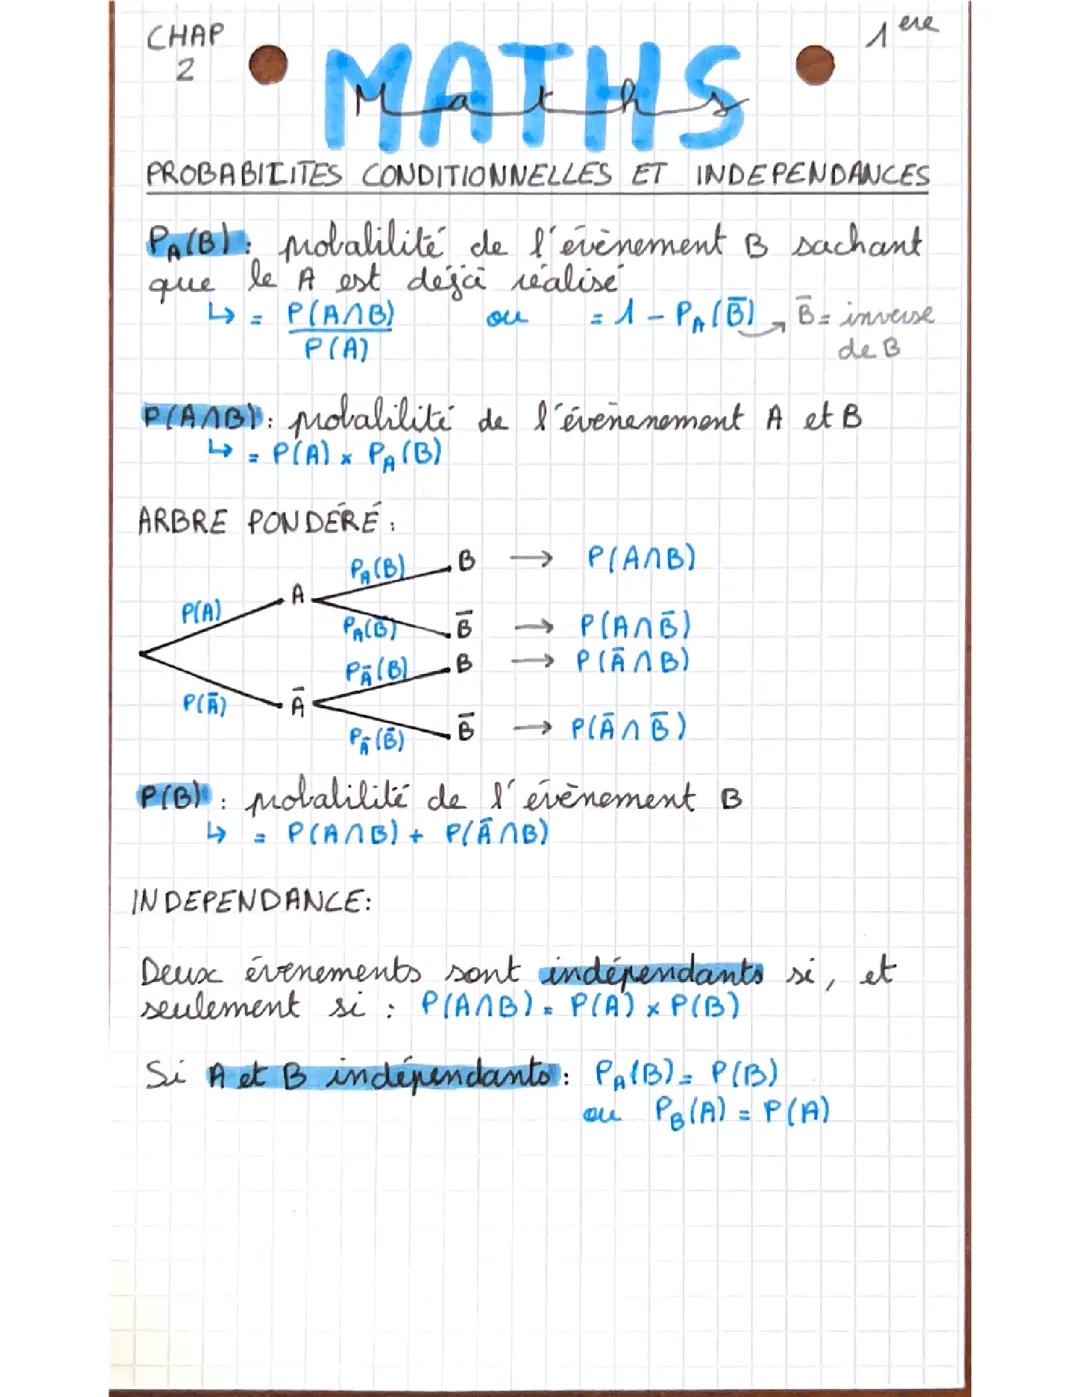 CHAP
2
1ere
MATHS
Maths
PROBABILITES CONDITIONNELLES ET INDEPENDANCES
P_A(B) : probabilité de l'évènement B sachant
que le A est déjà réalisé
↳ = P(A∩B)/P(A) ou = 1 - P_A(B̅) → B̅ = inverse
de B
P(A∩B) : probabilité de l'évènenement A et B
↳ = P(A) × P_A(B)
ARBRE PONDÉRÉ :
P_A(B) B → P(A∩B)
P(A) A
P_A(B̅) B̅ → P(A∩B̅)
P_A̅(B) B → P(A̅∩B)
P(A̅) A̅
P_A̅(B̅) B̅ → P(A̅∩B̅)
P(B) : probabilité de l'évènement B
↳ = P(A∩B) + P(A̅∩B)
INDEPENDANCE :
Deux évenements sont indépendants si, et
seulement si : P(A∩B) = P(A) × P(B)
Si A et B indépendants : P_A(B) = P(B)
ou P_B(A) = P(A)